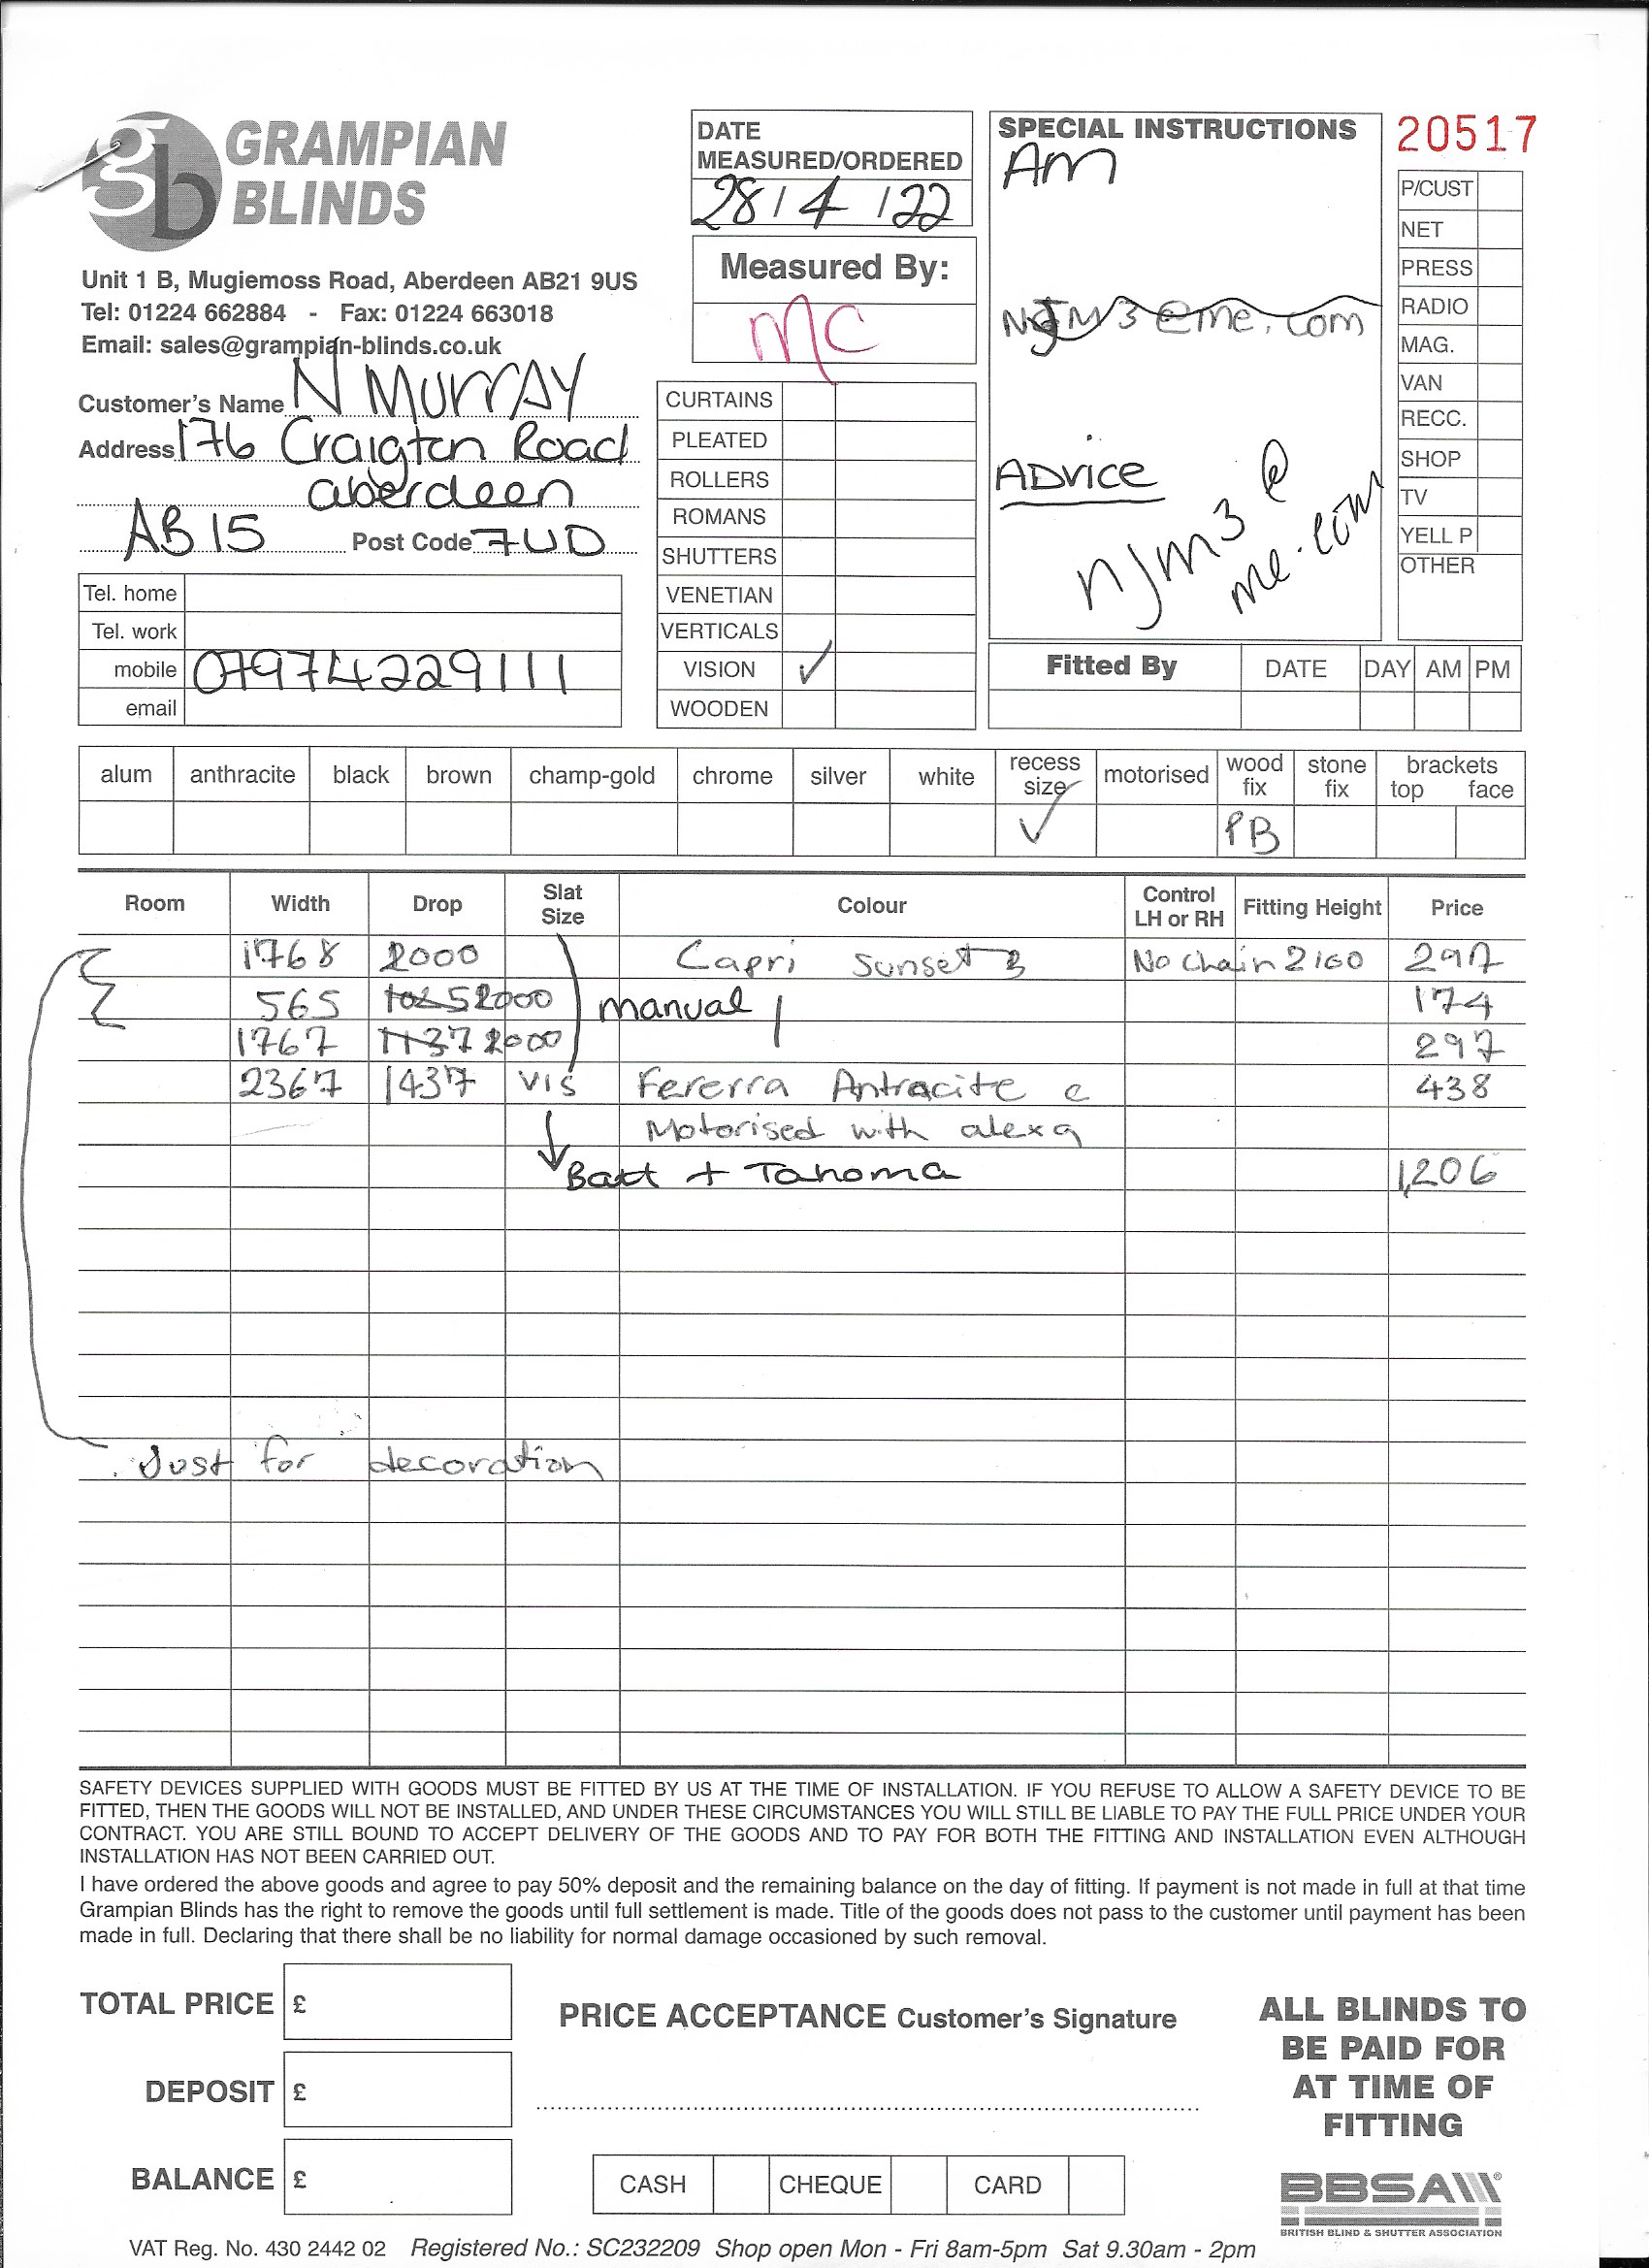 GRAMPIAN
BLINDS
Unit 1 B, Mugiemoss Road, Aberdeen AB21 9US
Tel: 01224 662884 - Fax: 01224 663018
Email: sales@grampian-blinds.co.uk
Customer's Name N Murray
Address 176 Craigton Road
aberdeen
AB15 Post Code 7UD
Tel. home
Tel. work
mobile 07974229111
email
DATE
MEASURED/ORDERED
28/4/22
Measured By:
MC
CURTAINS
PLEATED
ROLLERS
ROMANS
SHUTTERS
VENETIAN
VERTICALS
VISION ✓
WOODEN
SPECIAL INSTRUCTIONS
AM
NJM3@me.com
ADVICE
njm3@
me.com
20517
P/CUST
NET
PRESS
RADIO
MAG.
VAN
RECC.
SHOP
TV
YELL P
OTHER
Fitted By DATE DAY AM PM
alum anthracite black brown champ-gold chrome silver white recess size motorised wood fix stone fix brackets top face
✓ PB
Room Width Drop Slat Size Colour Control LH or RH Fitting Height Price
1768 2000 Capri Sunset 3 No Chain 2160 297
565 1025 2000 manual 174
1767 1137 2000 297
2367 1437 VIS Fererra Antracite c 438
Motorised with alexa
Batt + Tahoma 1,206
Just for decoration
SAFETY DEVICES SUPPLIED WITH GOODS MUST BE FITTED BY US AT THE TIME OF INSTALLATION. IF YOU REFUSE TO ALLOW A SAFETY DEVICE TO BE
FITTED, THEN THE GOODS WILL NOT BE INSTALLED, AND UNDER THESE CIRCUMSTANCES YOU WILL STILL BE LIABLE TO PAY THE FULL PRICE UNDER YOUR
CONTRACT. YOU ARE STILL BOUND TO ACCEPT DELIVERY OF THE GOODS AND TO PAY FOR BOTH THE FITTING AND INSTALLATION EVEN ALTHOUGH
INSTALLATION HAS NOT BEEN CARRIED OUT.
I have ordered the above goods and agree to pay 50% deposit and the remaining balance on the day of fitting. If payment is not made in full at that time
Grampian Blinds has the right to remove the goods until full settlement is made. Title of the goods does not pass to the customer until payment has been
made in full. Declaring that there shall be no liability for normal damage occasioned by such removal.
TOTAL PRICE £
DEPOSIT £
BALANCE £
PRICE ACCEPTANCE Customer's Signature
CASH CHEQUE CARD
ALL BLINDS TO
BE PAID FOR
AT TIME OF
FITTING
BBSA
BRITISH BLIND & SHUTTER ASSOCIATION
VAT Reg. No. 430 2442 02 Registered No.: SC232209 Shop open Mon - Fri 8am-5pm Sat 9.30am - 2pm